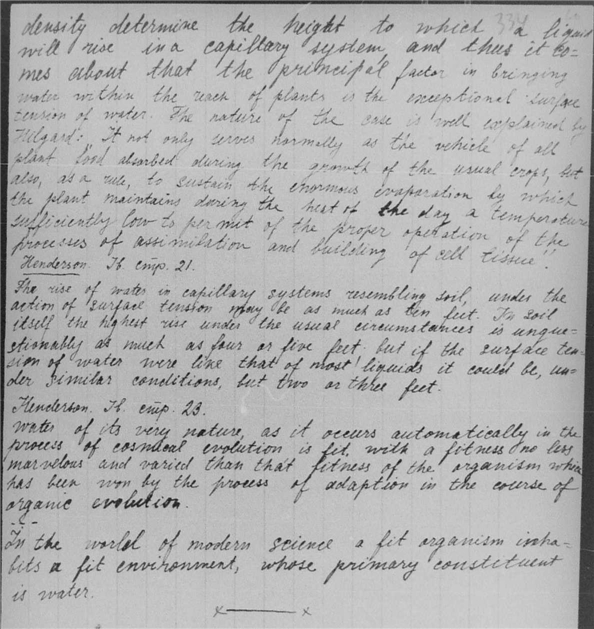 334
density determine the height to which a liquid
will rise in a capillary system, and thus it co-
mes about that the principal factor in bringing
water within the reach of plants is the exceptional surface
tension of water. The nature of the case is well explained by
Hilgard: "It not only serves normally as the vehicle of all
plant food absorbed during the growth of the usual crops, but
also, as a rule, to sustain the enormous evaporation by which
the plant maintains during the heat of the day a temperature
sufficiently low to permit of the proper operation of the
processes of assimilation and building of cell tissue".
Henderson. Ib. стр. 21.
The rise of water in capillary systems resembling soil, under the
action of surface tension may be as much as ten feet. In soil
itself the highest rise under the usual circumstances is unque-
stionably as much as four or five feet; but if the surface ten-
sion of water were like that of most liquids it could be, un-
der similar conditions, but two or three feet.
Henderson. Ib. стр. 23.
Water of its very nature, as it occurs automatically in the
process of cosmical evolution is fit, with a fitness no less
marvelous and varied than that fitness of the organism which
has been won by the process of adaption in the course of
organic evolution.
- - -
In the world of modern science a fit organism inha-
bits a fit environment, whose primary constituent
is water.
x——x